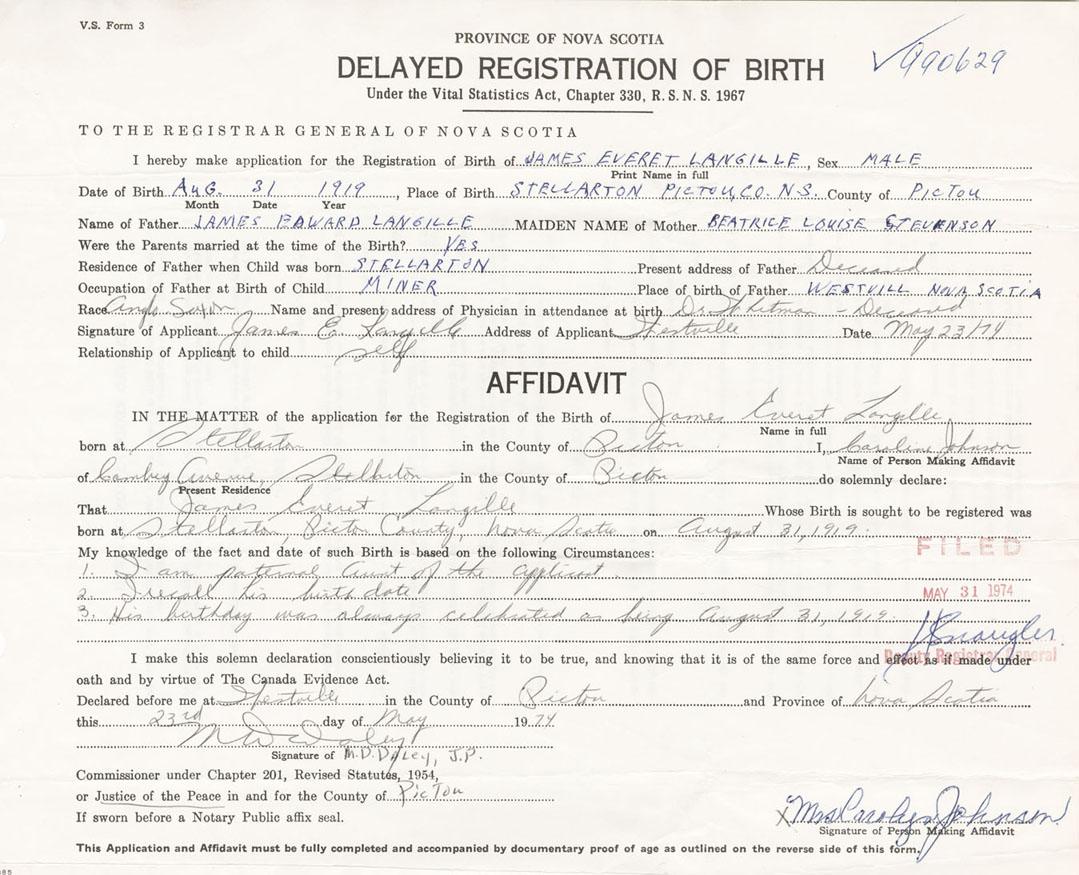 V.S. Form 3
PROVINCE OF NOVA SCOTIA
990629
DELAYED REGISTRATION OF BIRTH
Under the Vital Statistics Act, Chapter 330, R.S.N.S. 1967
TO THE REGISTRAR GENERAL OF NOVA SCOTIA
I hereby make application for the Registration of Birth of JAMES EVERET LANGILLE, Sex MALE
Print Name in full
Date of Birth AUG. 31 1919, Place of Birth STELLARTON PICTOU, CO. N.S. County of PICTOU
Month Date Year
Name of Father JAMES EDWARD LANGILLE MAIDEN NAME of Mother BEATRICE LOUISE STEVENSON
Were the Parents married at the time of the Birth? YES
Residence of Father when Child was born STELLARTON Present address of Father Deceased
Occupation of Father at Birth of Child MINER Place of birth of Father WESTVILL NOVA SCOTIA
Race Anglo Saxon Name and present address of Physician in attendance at birth Dr. Whitman - Deceased
Signature of Applicant James E Langille Address of Applicant Westville Date May 23/74
Relationship of Applicant to child self
AFFIDAVIT
IN THE MATTER of the application for the Registration of the Birth of James Everet Langille
Name in full
born at Stellarton in the County of Pictou I, Caroline Johnson
Name of Person Making Affidavit
of Avenue, Stellarton in the County of Pictou do solemnly declare:
Present Residence
That James Everet Langille Whose Birth is sought to be registered was
born at Stellarton, Pictou County, Nova Scotia on August 31, 1919.
My knowledge of the fact and date of such Birth is based on the following Circumstances:
FILED
1. I am paternal aunt of the applicant
2. I recall his birth date
MAY 31 1974
3. His birthday was always celebrated as being August 31, 1919.
Deputy Registrar General
I make this solemn declaration conscientiously believing it to be true, and knowing that it is of the same force and effect as if made under
oath and by virtue of The Canada Evidence Act.
Declared before me at Westville in the County of Pictou and Province of Nova Scotia
this 23rd day of May 1974
M D Daley
Signature of M.D. DALEY, J.P.
Commissioner under Chapter 201, Revised Statutes, 1954,
or Justice of the Peace in and for the County of PICTOU
If sworn before a Notary Public affix seal.
X Mrs Carolyn Johnson
Signature of Person Making Affidavit
This Application and Affidavit must be fully completed and accompanied by documentary proof of age as outlined on the reverse side of this form.